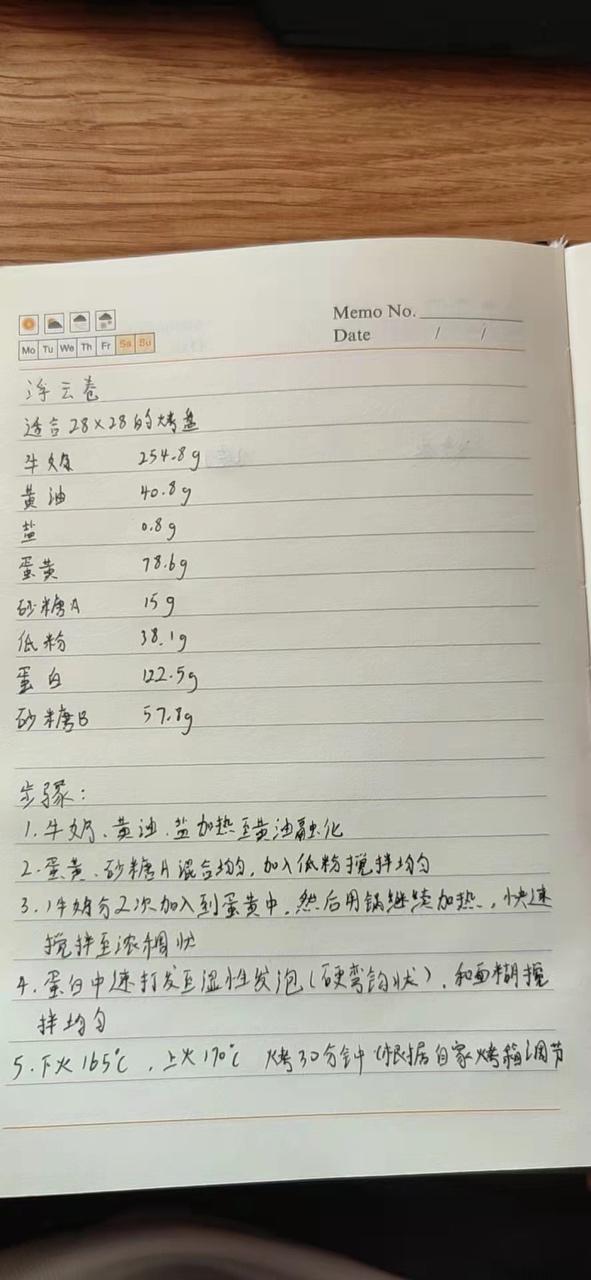 Memo No.
Date / /
Mo Tu We Th Fr Sa Su
浮云卷
适合28×28的烤盘
牛奶 254.8g
黄油 40.8g
盐 0.8g
蛋黄 78.6g
砂糖A 15g
低粉 38.1g
蛋白 122.5g
砂糖B 57.8g
步骤:
1.牛奶、黄油、盐加热至黄油融化
2.蛋黄、砂糖A混合均匀,加入低粉搅拌均匀
3.牛奶分2次加入到蛋黄中,然后用锅继续加热,快速
搅拌至浓稠状
4.蛋白中速打发至湿性发泡(硬弯钩状),和面糊搅
拌均匀
5.下火165℃,上火170℃ 烤30分钟(根据自家烤箱调节